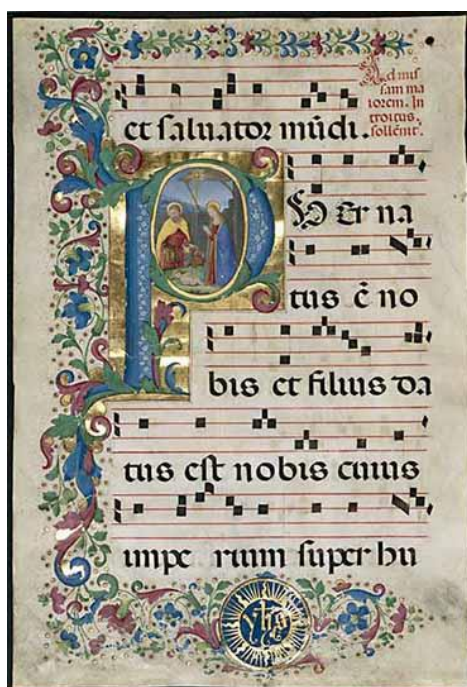 et saluator mūdi.
Ad mis
sam ma
iorem. In
troitus.
P
U Er na
tus ē no
bis et filius da
tus est nobis cuius
impe rium super hu
yhs